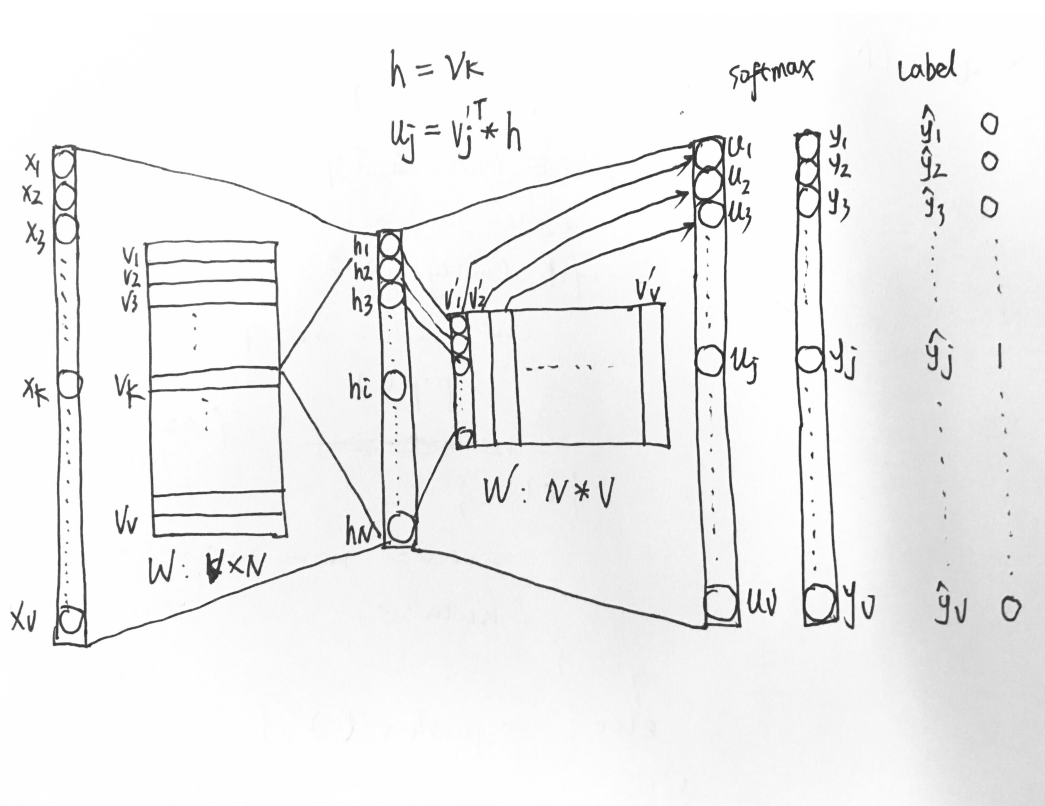 h = Vk
uj = Vj'T * h
softmax
Label
x1
x2
x3
xk
xv
V1
V2
V3
Vk
Vv
W: V×N
h1
h2
h3
hi
hN
V1'
V2'
Vv'
W: N*V
u1
u2
u3
uj
uv
y1
y2
y3
yj
yv
ŷ1 0
ŷ2 0
ŷ3 0
ŷj 1
ŷv 0